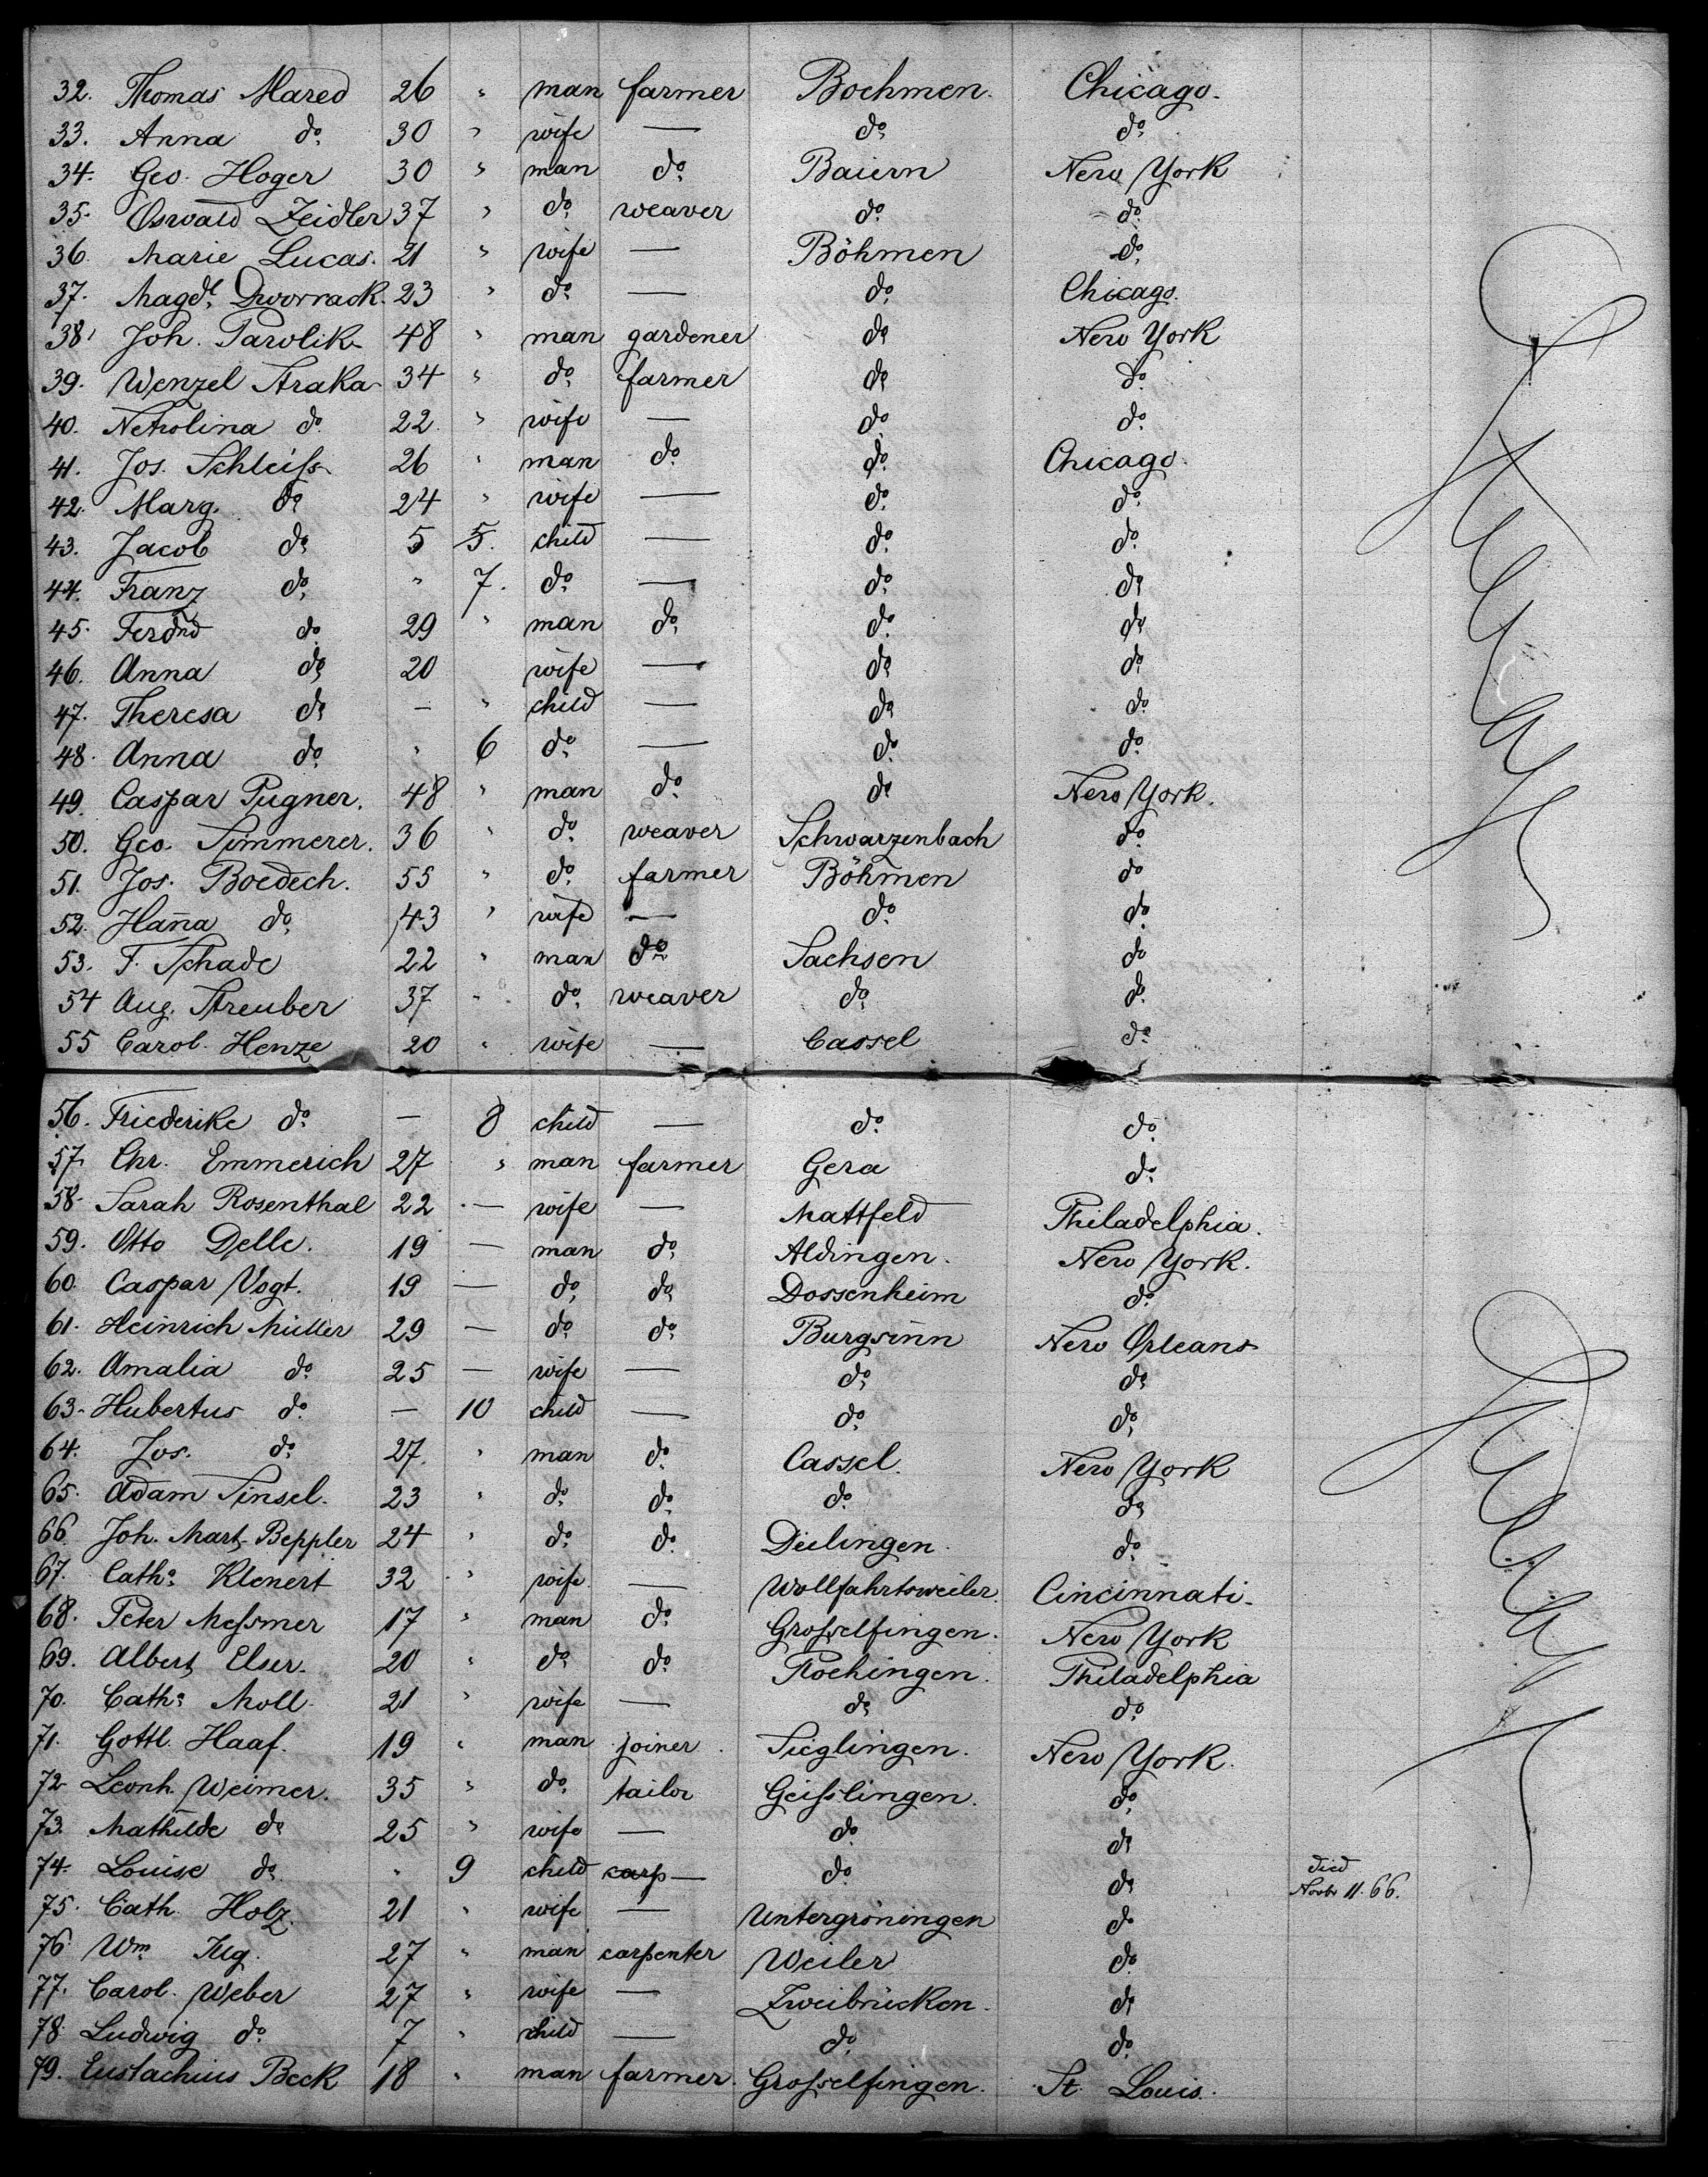 32. Thomas Mared 26 " man farmer Boehmen. Chicago.
33. Anna do 30 " wife — do do
34. Geo. Hoger 30 " man do Baiern New York
35. Oswald Zeidler 37 " do weaver do do
36. Marie Lucas. 21 " wife — Böhmen do
37. Magdl. Dworrack. 23 " do — do Chicago.
38. Joh. Parolik 48 " man gardener do New York
39. Wenzel Straka 34 " do farmer do do
40. Netrolina do 22 " wife — do do
41. Jos. Schleiss 26 " man do do Chicago.
42. Marg. do 24 " wife — do do
43. Jacob do 5 5. child — do do
44. Franz do " 7. do — do do
45. Ferdnd do 29 " man do do do
46. Anna do 20 wife — do do
47. Theresa do — " child — do do
48. Anna do " 6 do — do do
49. Caspar Pugner. 48 " man do do New York.
50. Geo. Simmerer. 36 " do weaver Schwarzenbach do
51. Jos. Boedech. 55 " do farmer Böhmen do
52. Hana do 43 " wife — do do
53. F. Schade 22 " man do Sachsen do
54 Aug. Streuber 37 " do weaver do do
55 Carol. Henze 20 " wife — Cassel do
56. Friederike do — 8 child — do do
57. Chr. Emmerich 27 " man farmer Gera do
58. Sarah Rosenthal 22 — wife — Mattfeld Philadelphia.
59. Otto Delle. 19 — man do Aldingen. New York.
60. Caspar Vogt. 19 — do do Dossenheim do
61. Heinrich Müller 29 — do do Burgsinn New Orleans
62. Amalia do 25 — wife — do do
63. Hubertus do — 10 child — do do
64. Jos. do 27. " man do Cassel. New York
65. Adam Sinsel. 23 " do do do do
66. Joh. Mart. Beppler 24 " do do Deilingen. do
67. Cath. Klenert 32 " wife — Wollfahrtsweiler. Cincinnati.
68. Peter Messmer 17 " man do Grosselfingen. New York
69. Albert Elser. 20 " do do Plochingen. Philadelphia
70. Cath. Moll. 21 " wife — do do
71. Gottl. Haaf. 19 " man joiner. Sieglingen. New York.
72. Leonh. Weimer. 35 " do tailor Geisslingen. do
73. Mathilde do 25 " wife — do do
74. Louise do " 9 child carp — do do died Novbr 11. 66.
75. Cath. Holz. 21 " wife — Untergröningen do
76. Wm Jug. 27 " man carpenter Weiler do
77. Carol. Weber 27 " wife — Zweibrücken. do
78. Ludwig do 7 " child — do do
79. Eustachius Beck 18 " man farmer. Grosselfingen. St. Louis.